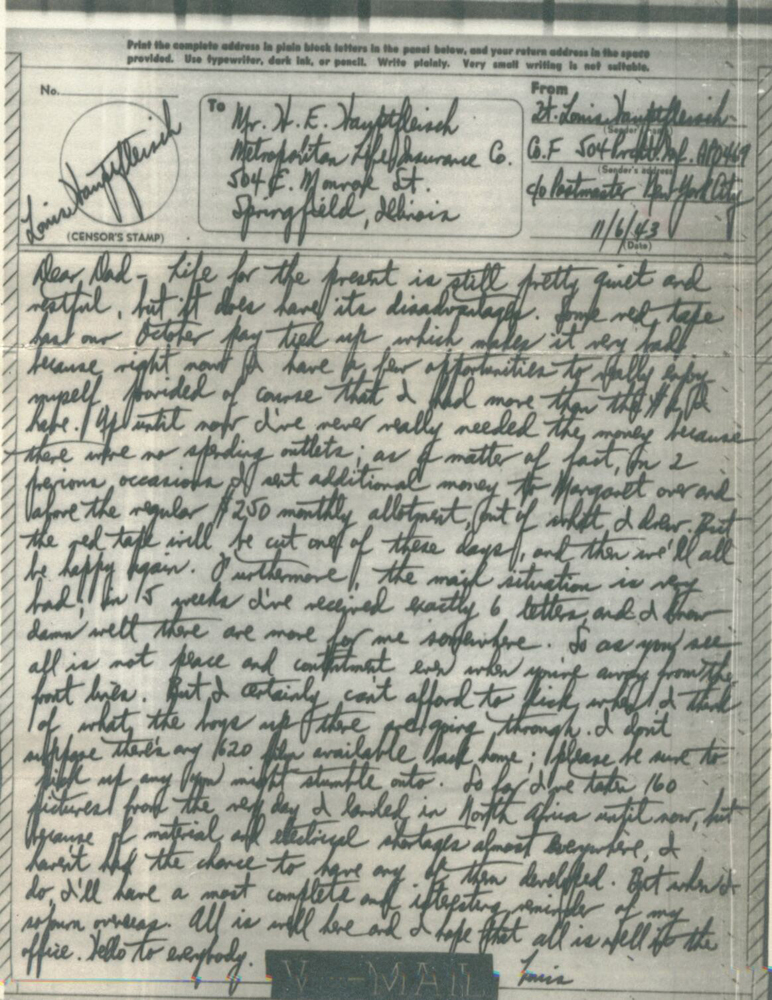 Print the complete address in plain block letters in the panel below, and your return address in the space
provided. Use typewriter, dark ink, or pencil. Write plainly. Very small writing is not suitable.
No.
To
From
Mr. H. E. Hauptfleisch
Metropolitan Life Insurance Co.
504 E. Monroe St.
Springfield, Illinois
Lt. Louis Hauptfleisch
(Sender's name)
Co. F 504 Prcht. Inf. APO 469
(Sender's address)
c/o Postmaster New York City
11/6/43
(Date)
Louis Hauptfleisch
(CENSOR'S STAMP)
Dear Dad - Life for the present is still pretty quiet and
restful, but it does have its disadvantages. Some red tape
has our October pay tied up which makes it very bad
because right now I have a few opportunities to really enjoy
myself provided of course that I had more than the I
have. Up until now I've never really needed the money because
there were no spending outlets; as a matter of fact, on 2
previous occasions I sent additional money to Margaret over and
above the regular $250 monthly allotment, out of what I drew. But
the red tape will be cut one of these days, and then we'll all
be happy again. Furthermore, the mail situation is very
bad; in 5 weeks I've received exactly 6 letters, and I know
damn well there are more for me somewhere. So as you see
all is not peace and contentment even when you're away from the
front lines. But I certainly can't afford to kick when I think
of what the boys up there are going through. I don't
suppose there's any 620 film available back home; please be sure to
pick up any you might stumble onto. So far I've taken 160
pictures from the very day I landed in North Africa until now, but
because of material and electrical shortages almost everywhere, I
haven't had the chance to have any of them developed. But when I
do, I'll have a most complete and interesting reminder of my
sojourn overseas. All is well here and I hope that all is well at the
office. Hello to everybody.
Louis
V - MAIL